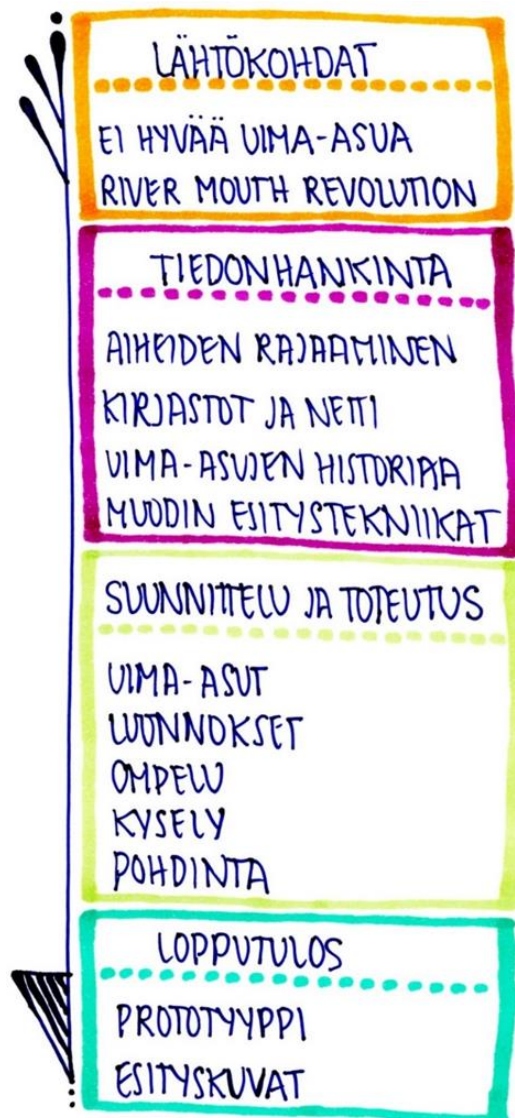 LÄHTÖKOHDAT
EI HYVÄÄ UIMA-ASUA
RIVER MOUTH REVOLUTION
TIEDONHANKINTA
AIHEIDEN RAJAAMINEN
KIRJASTOT JA NETTI
UIMA-ASUJEN HISTORIAA
MUODIN ESITYSTEKNIIKAT
SUUNNITTELU JA TOTEUTUS
UIMA-ASUT
LUONNOKSET
OMPELU
KYSELY
POHDINTA
LOPPUTULOS
PROTOTYYPPI
ESITYSKUVAT